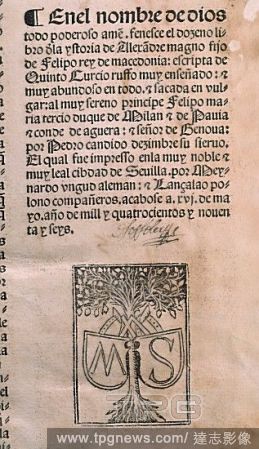 ¶ Enel nombre de dios
todo poderoso amē. fenesce el dozeno
libro d̄la ystoria de Alexādre magno fijo
de Felipo rey de macedonia: escripta de
Quinto Curcio ruffo muy enseñado: ⁊
muy abundoso en todo. ⁊ sacada en vul
gar: al muy sereno principe Felipo ma
ria tercio duque de Milan ⁊ de Pauia
⁊ conde de aguera: ⁊ señor de Genoua:
por Pedro candido dezimbre su sieruo.
El qual fue impresso enla muy noble ⁊
muy leal cibdad de Seuilla. por Mey
nardo vngud aleman: ⁊ Lançalao po
lono compañeros. acabose a .xvj. de ma
yo. año de mill y quatrocientos y nouen
ta y seys.
M S
www.tpgnews.com / 達志影像